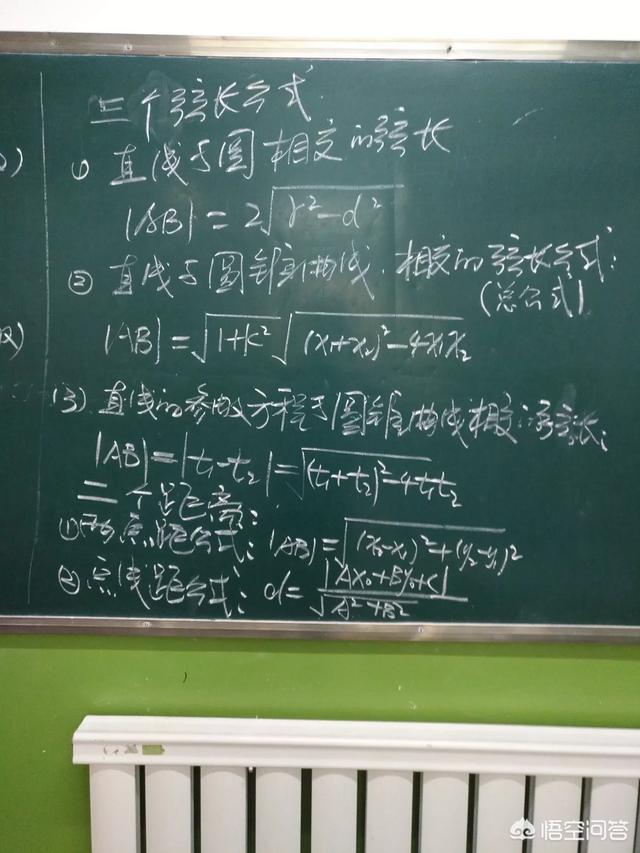 三个弦长公式
① 直线与圆相交的弦长
|AB| = 2√(r²-d²)
② 直线与圆锥曲线相交的弦长公式:
(总公式)
|AB| = √(1+k²) √((x₁+x₂)²-4x₁x₂)
(3) 直线的参数方程与圆锥曲线相交 弦长:
|AB| = |t₁-t₂| = √((t₁+t₂)²-4t₁t₂)
二个距离:
① 两点距公式: |AB| = √((x₂-x₁)²+(y₂-y₁)²)
② 点线距公式: d = |Ax₀+By₀+C| / √(A²+B²)
悟空问答